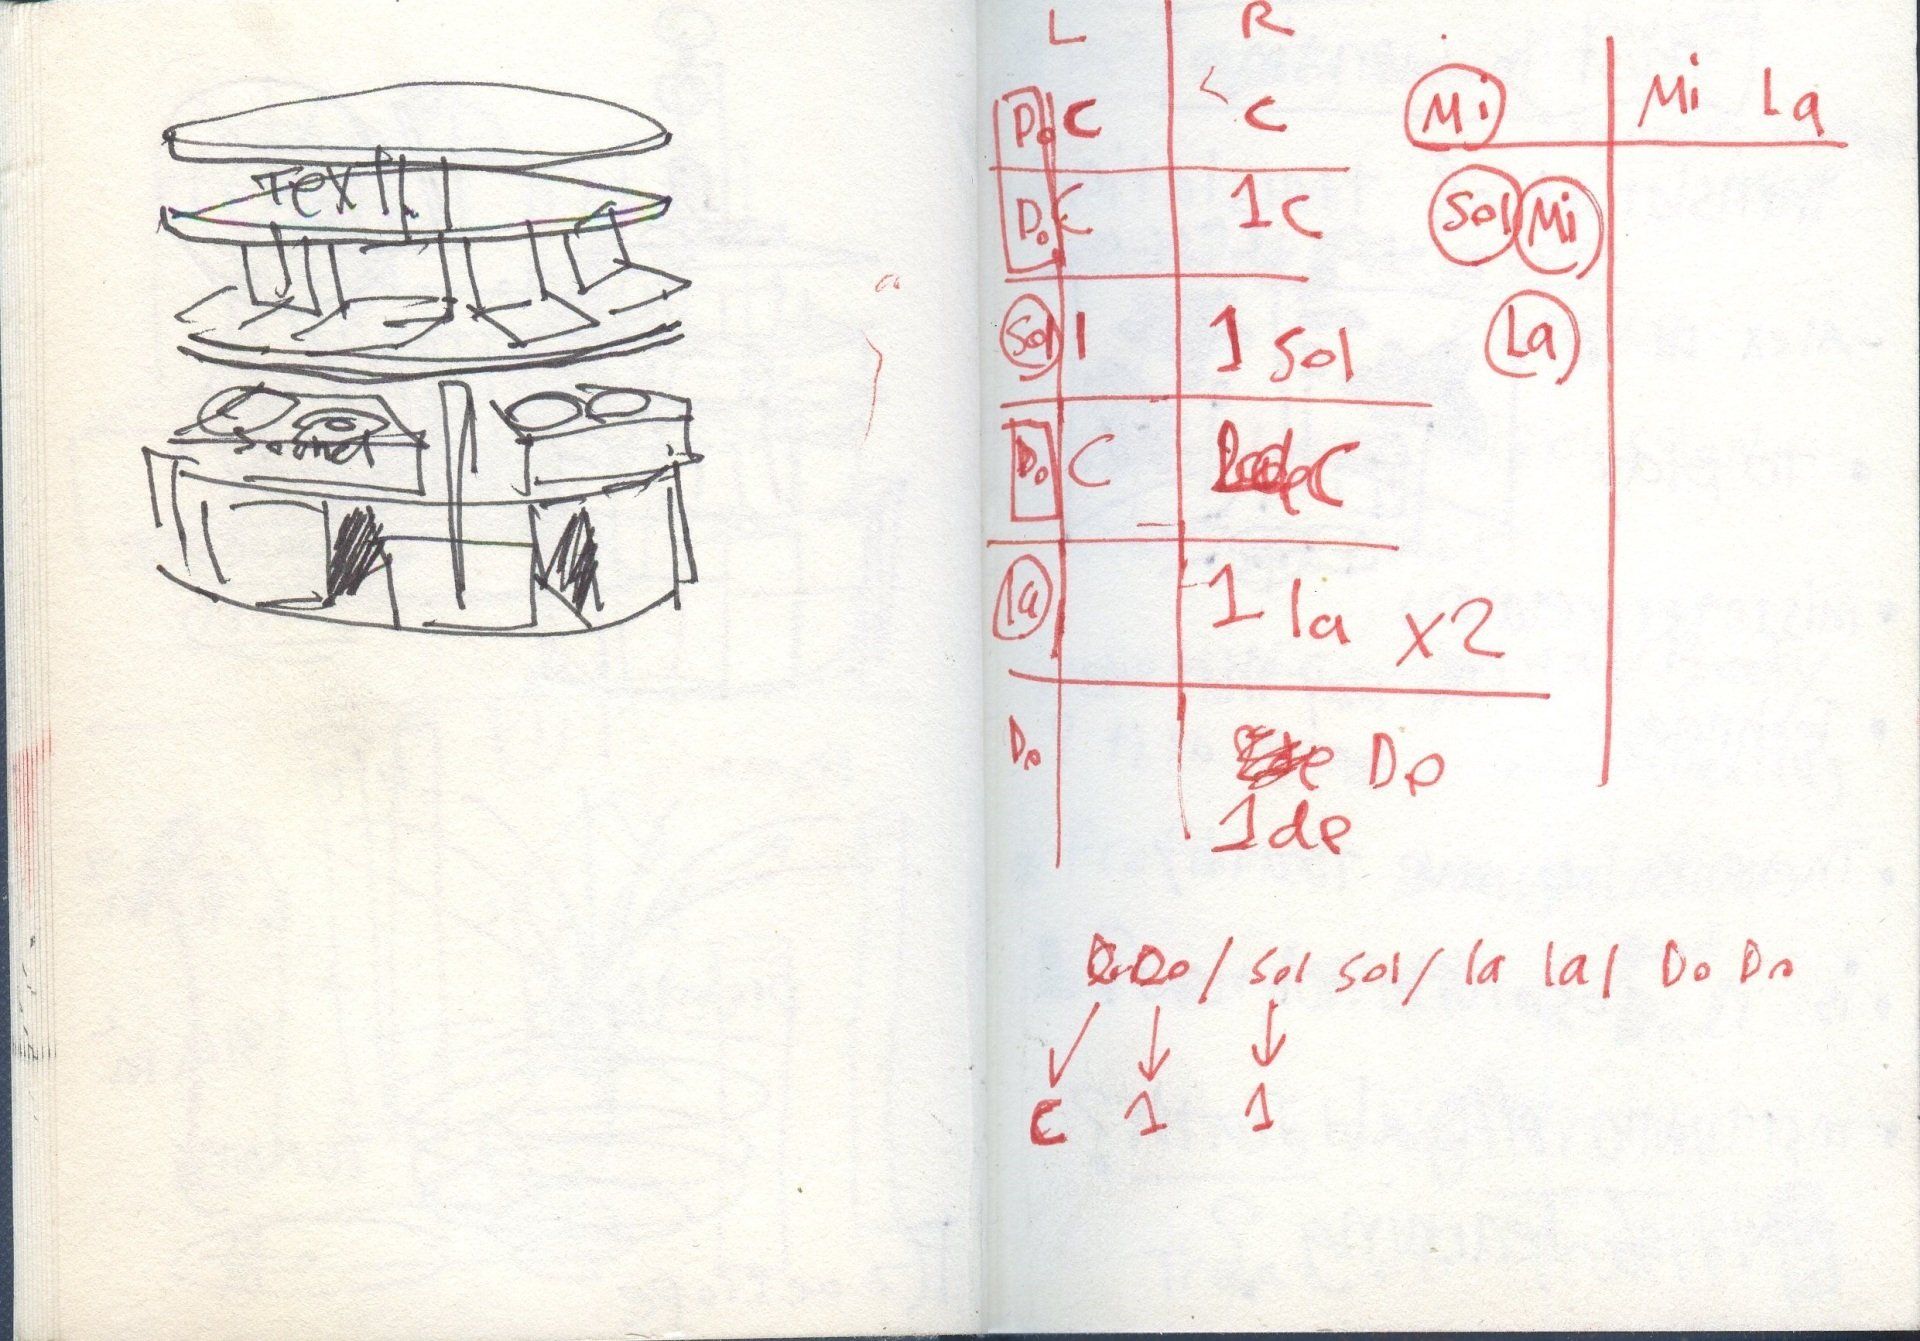 Text
Sound
L R
Do C C
Do C 1 C
Sol 1 1 Sol
Do C C
la 1 la x2
Do Do
1 do
Mi Mi La
Sol Mi
La
Do Do / Sol Sol / la la / Do Do
C 1 1